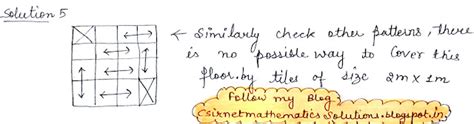 Solution 5
← Similarly check other patterns, there
is no possible way to cover this
floor. by tiles of size 2m x 1m
Follow my Blog
Csirnetmathematics Solutions.blogspot.in.